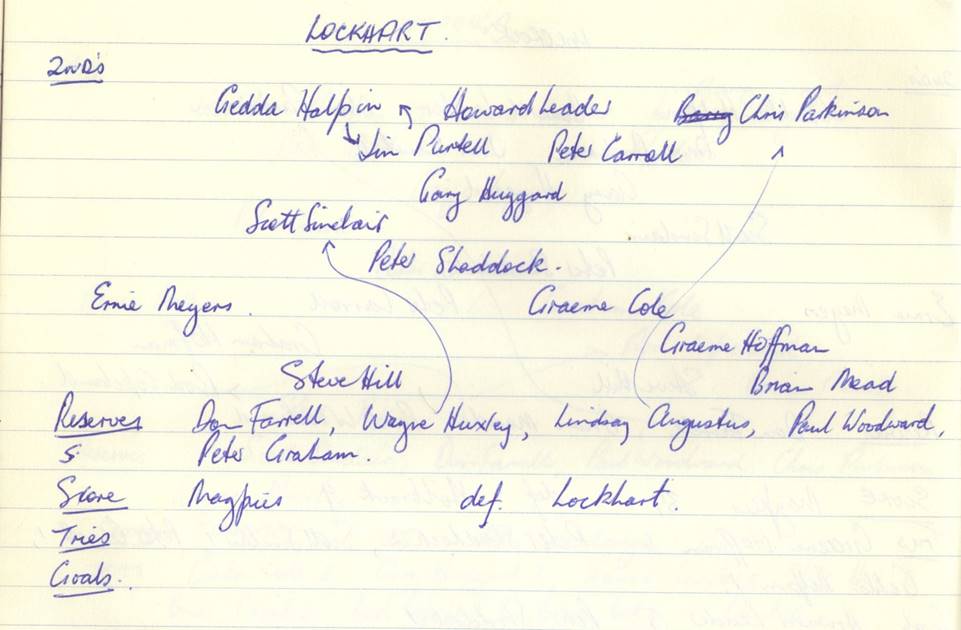 LOCKHART.
2ND'S
Gedda Halpin Howard Leader Barry Chris Parkinson
Jim Purtell Peter Carroll
Gary Huggard
Scott Sinclair
Peter Shaddock.
Ernie Meyers. Graeme Cole
Graeme Hoffman
Steve Hill Brian Mead
Reserves Don Farrell, Wayne Huxley, Lindsay Augustus, Paul Woodward,
5. Peter Graham.
Score Magpies def. Lockhart.
Tries
Goals.